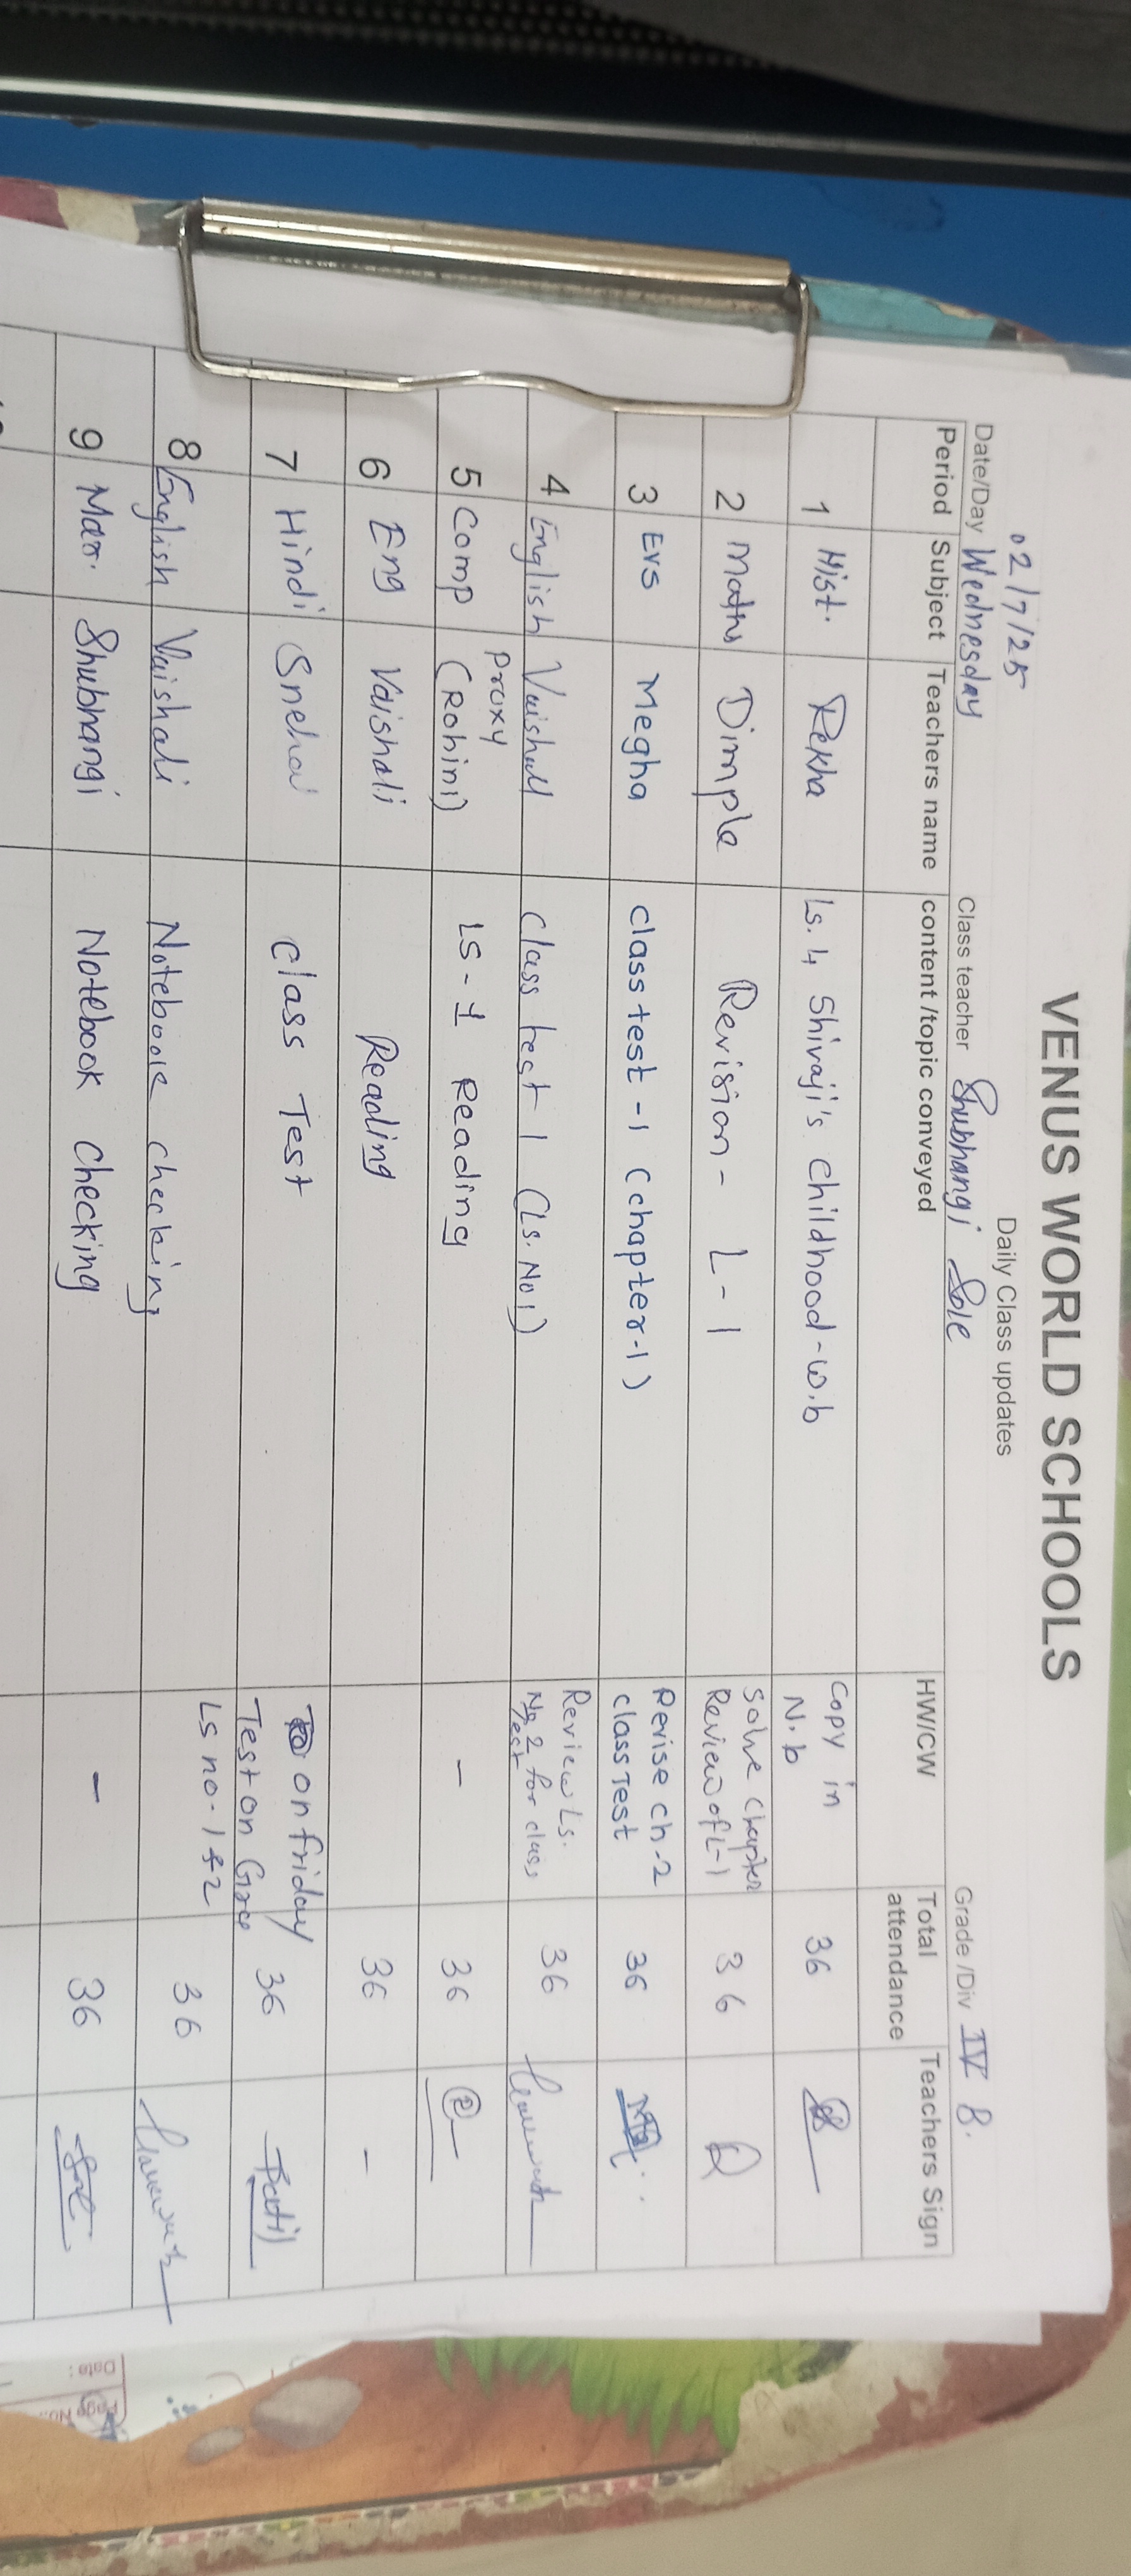 VENUS WORLD SCHOOLS
Daily Class updates
02/7/25
Date/Day Wednesday Class teacher Shubhangi Sole Grade /Div IV B.
Period Subject Teachers name content /topic conveyed HW/CW Total attendance Teachers Sign
1 Hist. Rekha Ls. 4 Shivaji's childhood - w.b Copy in N.b 36
2 Maths Dimple Revision - L - 1 Solve chapter Review of L-1 36
3 EVS Megha class test - 1 (chapter-1) Revise ch-2 class Test 36
4 English Vaishali Class test 1 (Ls. No 1) Review Ls. No 2 for class Test 36
5 Comp proxy (Rohini) LS - 1 Reading - 36
6 Eng Vaishali Reading 36 -
7 Hindi Snehal class Test on friday Test on 36 Patil
8 English Vaishali Notebook checking Ls no. 1 & 2 36
9 Mar. Shubhangi Notebook checking - 36
Date :
Page No.